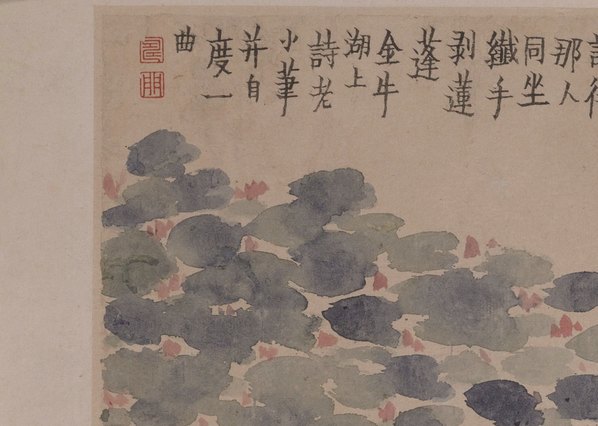 記得
那人
同坐
纖手
剥蓮
蓬
金牛
湖上
詩老
小筆
并自
度一
曲